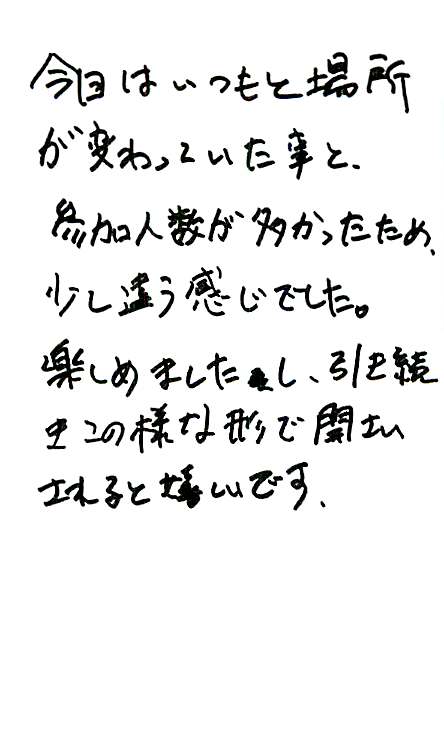 今日はいつもと場所
が変わっていた事と、
参加人数が多かったため、
少し違う感じでした。
楽しめましたし、引き続
きこの様な形で開さい
されると嬉しいです、